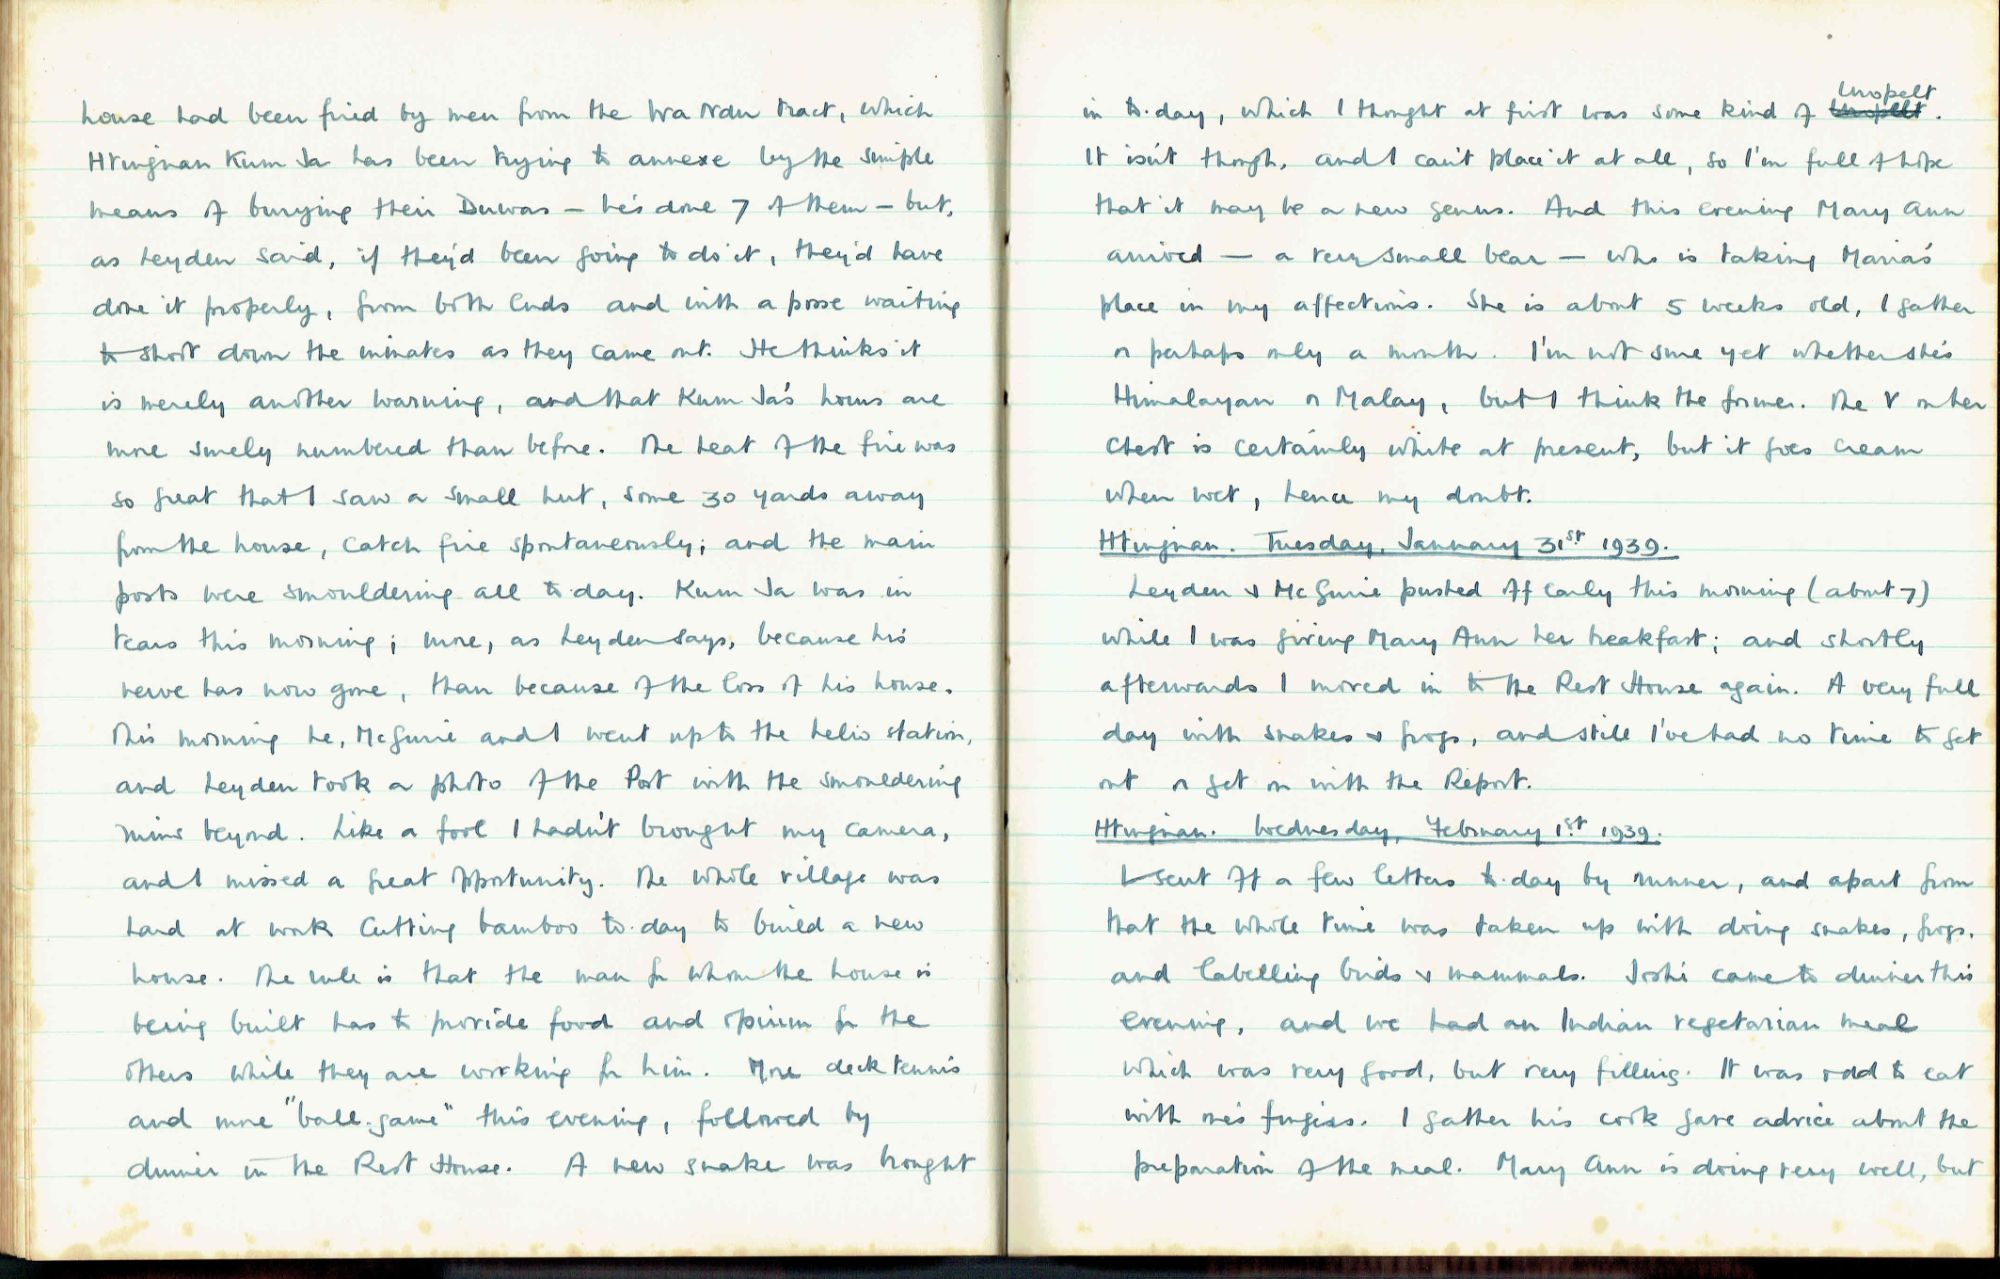 house had been fired by men from the Wa Ndu tract, which
Htingnan Kum Ja has been trying to annexe by the simple
means of burying their Duwas – he's done 7 of them – but,
as Leyden said, if they'd been going to do it, they'd have
done it properly, from both ends and with a posse waiting
to shoot down the inmates as they came out. He thinks it
is merely another warning, and that Kum Ja's hours are
more surely numbered than before. The heat of the fire was
so great that I saw a small hut, some 30 yards away
from the house, catch fire spontaneously; and the main
posts were smouldering all to-day. Kum Ja was in
tears this morning; more, as Leyden says, because his
nerve has now gone, than because of the loss of his house.
This morning he, McGuire and I went up to the helio station,
and Leyden took a photo of the Post with the smouldering
ruins beyond. Like a fool I hadn't brought my camera,
and I missed a great opportunity. The whole village was
hard at work cutting bamboo to-day to build a new
house. The rule is that the man for whom the house is
being built has to provide food and opium for the
others while they are working for him. More deck tennis
and more "ball-game" this evening, followed by
dinner in the Rest House. A new snake was brought
in to-day, which I thought at first was some kind of Uropelt.
It isn't though, and I can't place it at all, so I'm full of hope
that it may be a new genus. And this evening Mary Ann
arrived – a very small bear – who is taking Maria's
place in my affections. She is about 5 weeks old, I gather
or perhaps only a month. I'm not sure yet whether she's
Himalayan or Malay, but I think the former. The V on her
chest is certainly white at present, but it goes cream
when wet, hence my doubt.
Htingnan. Tuesday, January 31st 1939.
Leyden & McGuire pushed off early this morning (about 7)
while I was giving Mary Ann her breakfast; and shortly
afterwards I moved in to the Rest House again. A very full
day with snakes & frogs, and still I've had no time to get
out or get on with the Report.
Htingnan. Wednesday, February 1st 1939.
I sent off a few letters to-day by runner, and apart from
that the whole time was taken up with doing snakes, frogs,
and labelling birds & mammals. Joshi came to dinner this
evening, and we had an Indian vegetarian meal
which was very good, but very filling. It was odd to eat
with one's fingers. I gather his cook gave advice about the
preparation of the meal. Mary Ann is doing very well, but